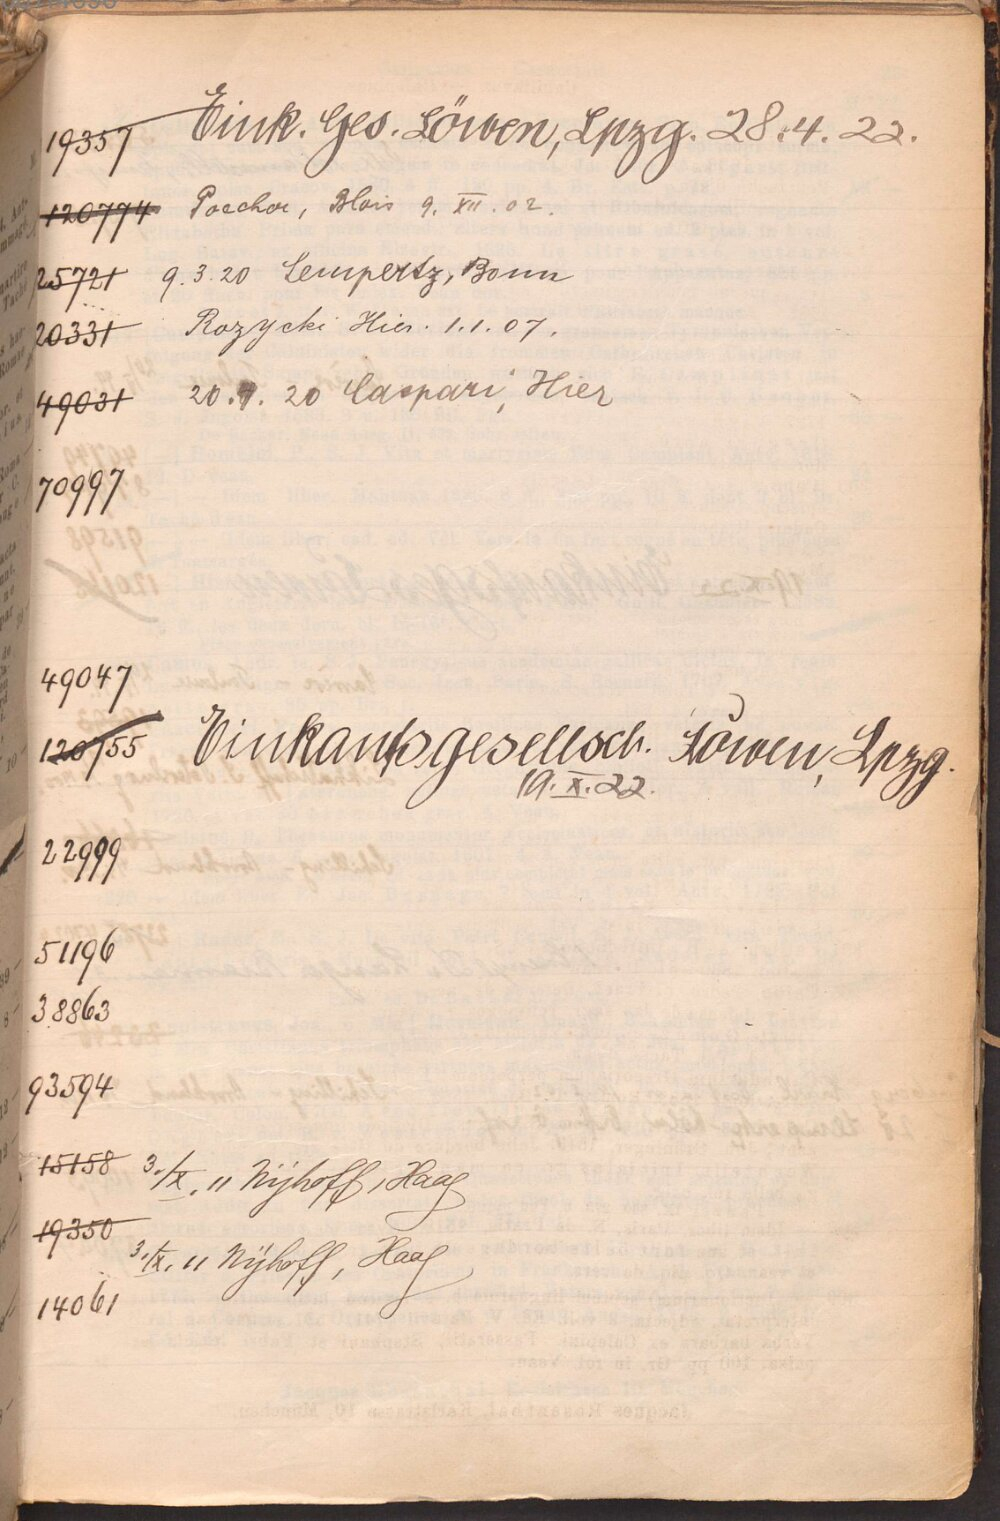 19357 Eink. Ges. Löwen, Lpzg. 28.4.22.
120774 Blois 9. XII. 02.
25721 9.3.20 Lempertz, Bonn
20331 Rozycki Hier. 1.1.07.
49031 20. 20 Caspari, Hier
70997
49047
120755 Einkaufsgesellsch. Löwen, Lpzg.
19. X. 22.
22999
51196
38863
93594
15158 3./X. 11 Nijhoff, Haag
19350 3./X. 11 Nijhoff, Haag
14061